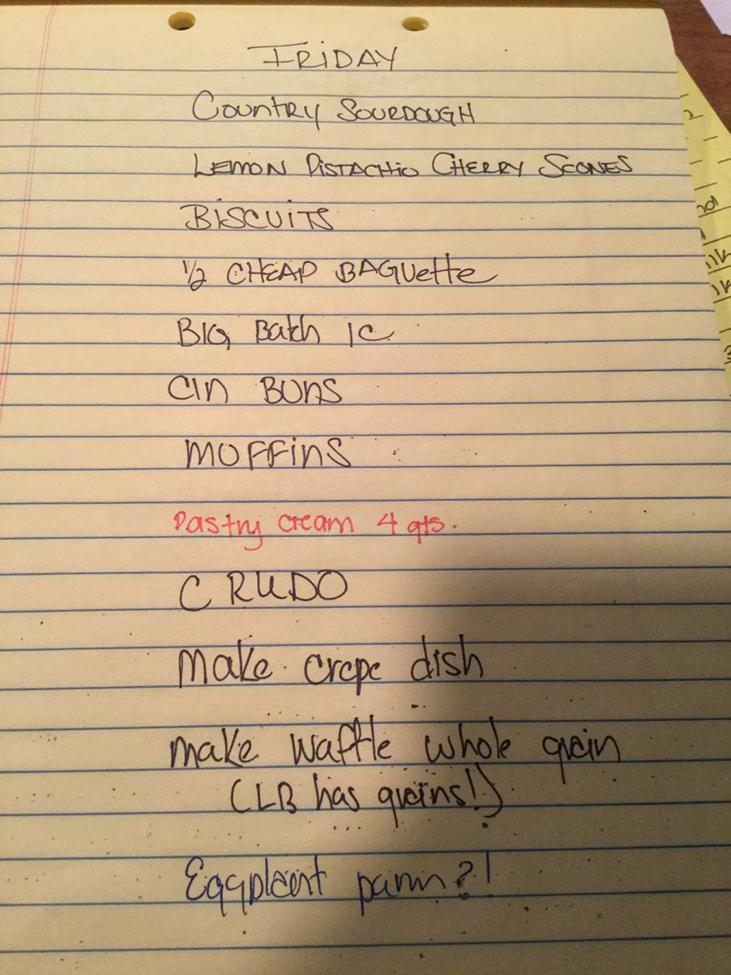 FRIDAY
COUNTRY SOURDOUGH
LEMON PISTACHIO CHERRY SCONES
BISCUITS
1/2 CHEAP BAGUette
BIG Batch IC
CIN BUNS
MUFFINS
Pastry cream 4 qts.
CRUDO
Make crepe dish
make waffle whole grain
(LB has grains!)
Eggplant parm?!